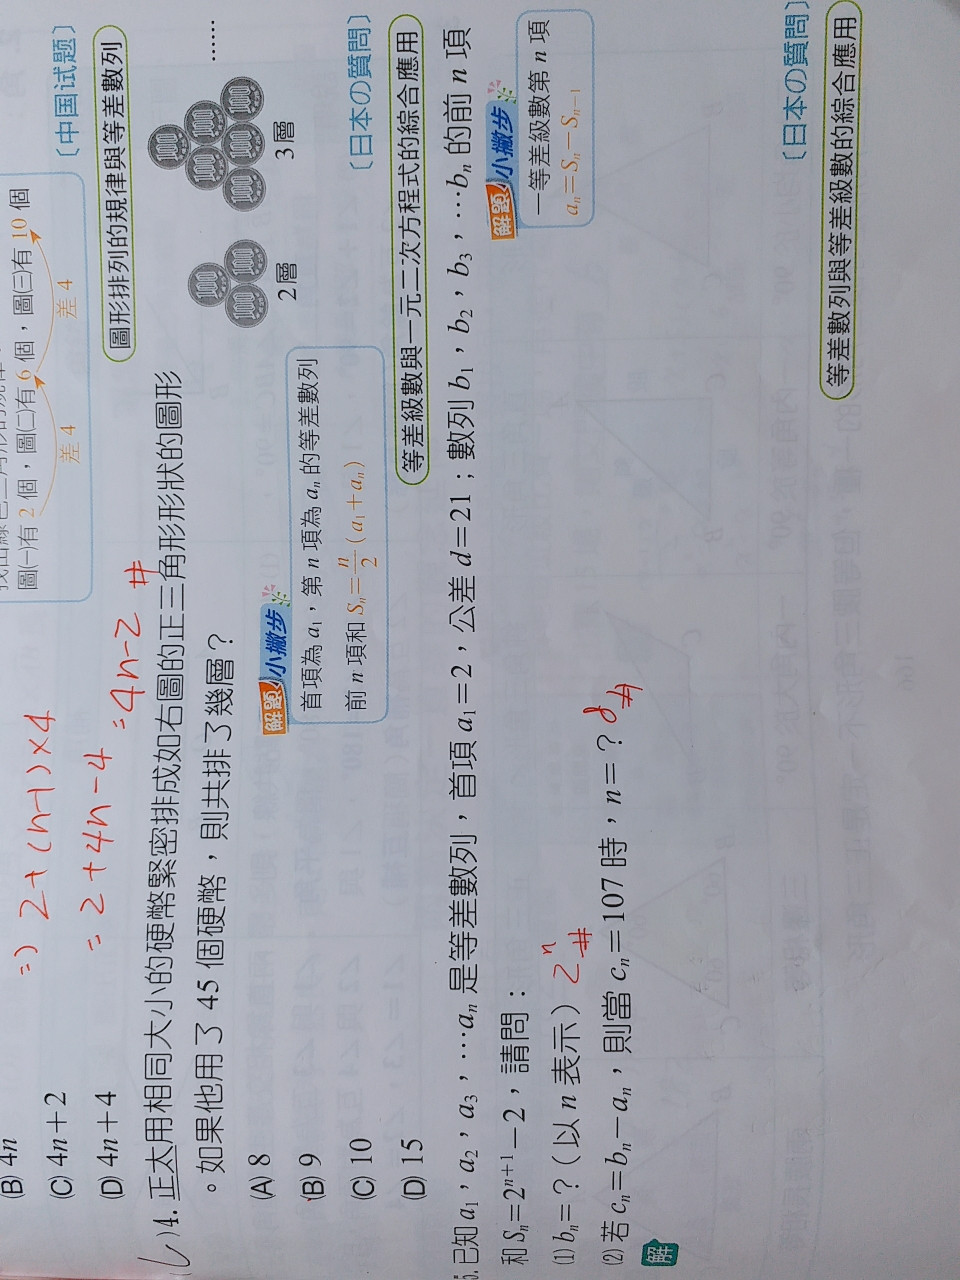 圖㈠有 2 個，圖㈡有 6 個，圖㈢有 10 個
差 4 差 4
(B) 4n
(C) 4n＋2
(D) 4n＋4
⇒ 2+(n-1)×4
= 2+4n-4
= 4n-2 #
〔中国试题〕
圖形排列的規律與等差數列
( )4. 正太用相同大小的硬幣緊密排成如右圖的正三角形形狀的圖形
。如果他用了 45 個硬幣，則共排了幾層？
(A) 8
(B) 9
(C) 10
(D) 15
解題小撇步
首項為 a₁，第 n 項為 aₙ 的等差數列
前 n 項和 Sₙ＝n/2(a₁＋aₙ)
2 層
3 層
……
〔日本の質問〕
等差級數與一元二次方程式的綜合應用
5. 已知 a₁，a₂，a₃，…aₙ 是等差數列，首項 a₁＝2，公差 d＝21；數列 b₁，b₂，b₃，…bₙ 的前 n 項
和 Sₙ＝2ⁿ⁺¹－2，請問：
⑴ bₙ＝？（以 n 表示） 2ⁿ #
⑵ 若 cₙ＝bₙ－aₙ，則當 cₙ＝107 時，n＝？ 8 #
解
解題小撇步
一等差級數第 n 項
aₙ＝Sₙ－Sₙ₋₁
〔日本の質問〕
等差數列與等差級數的綜合應用